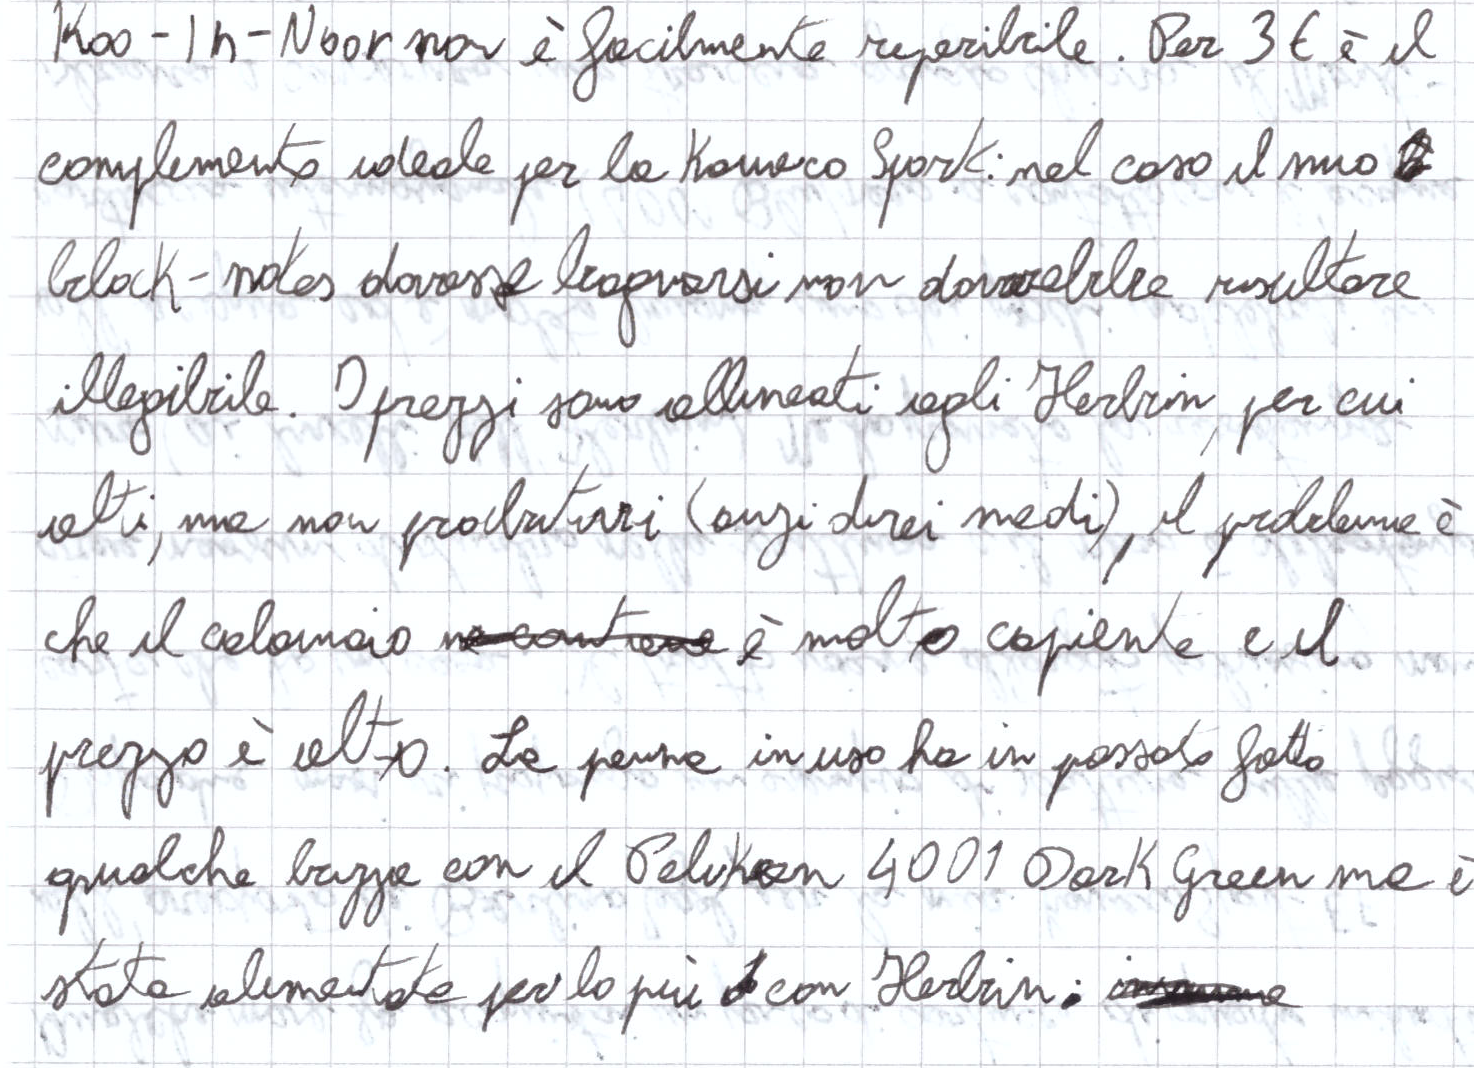 Koo-In-Noor non è facilmente reperibile. Per 3€ è il
complemento ideale per la Kaweco Sport: nel caso il mio
block-notes dovesse bagnarsi non dovrebbe risultare
illegibile. I prezzi sono allineati agli Herbin, per cui
alti, ma non proibitivi (anzi direi medi), il problema è
che il calamaio è molto capiente e il
prezzo è alto. La penna in uso ha in passato fatto
qualche bizza con il Pelikan 4001 Dark Green ma è
stata alimentata per lo più con Herbin: